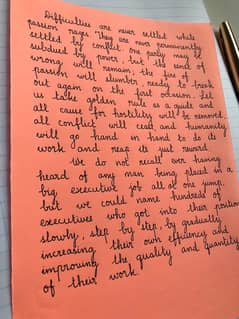 Difficulties are never settled while
passion rages. They are never permanently
settled by conflict. One party may be
subdued by power, but the sense of
wrong will remain; the fire of
passion will slumber, ready to break
out again on the first occasion. Let
us take golden rule as a guide and
all cause for hostility will be removed,
all conflict will cease, and humanity
will go hand in hand to do its
work and reap its just reward.
We do not recall ever having
heard of any man being placed in a
big executive job all at one jump,
but we could name hundreds of
executives who got into their position
slowly, step by step, by gradually
increasing their own efficiency and
improving the quality and quantity
of their work.